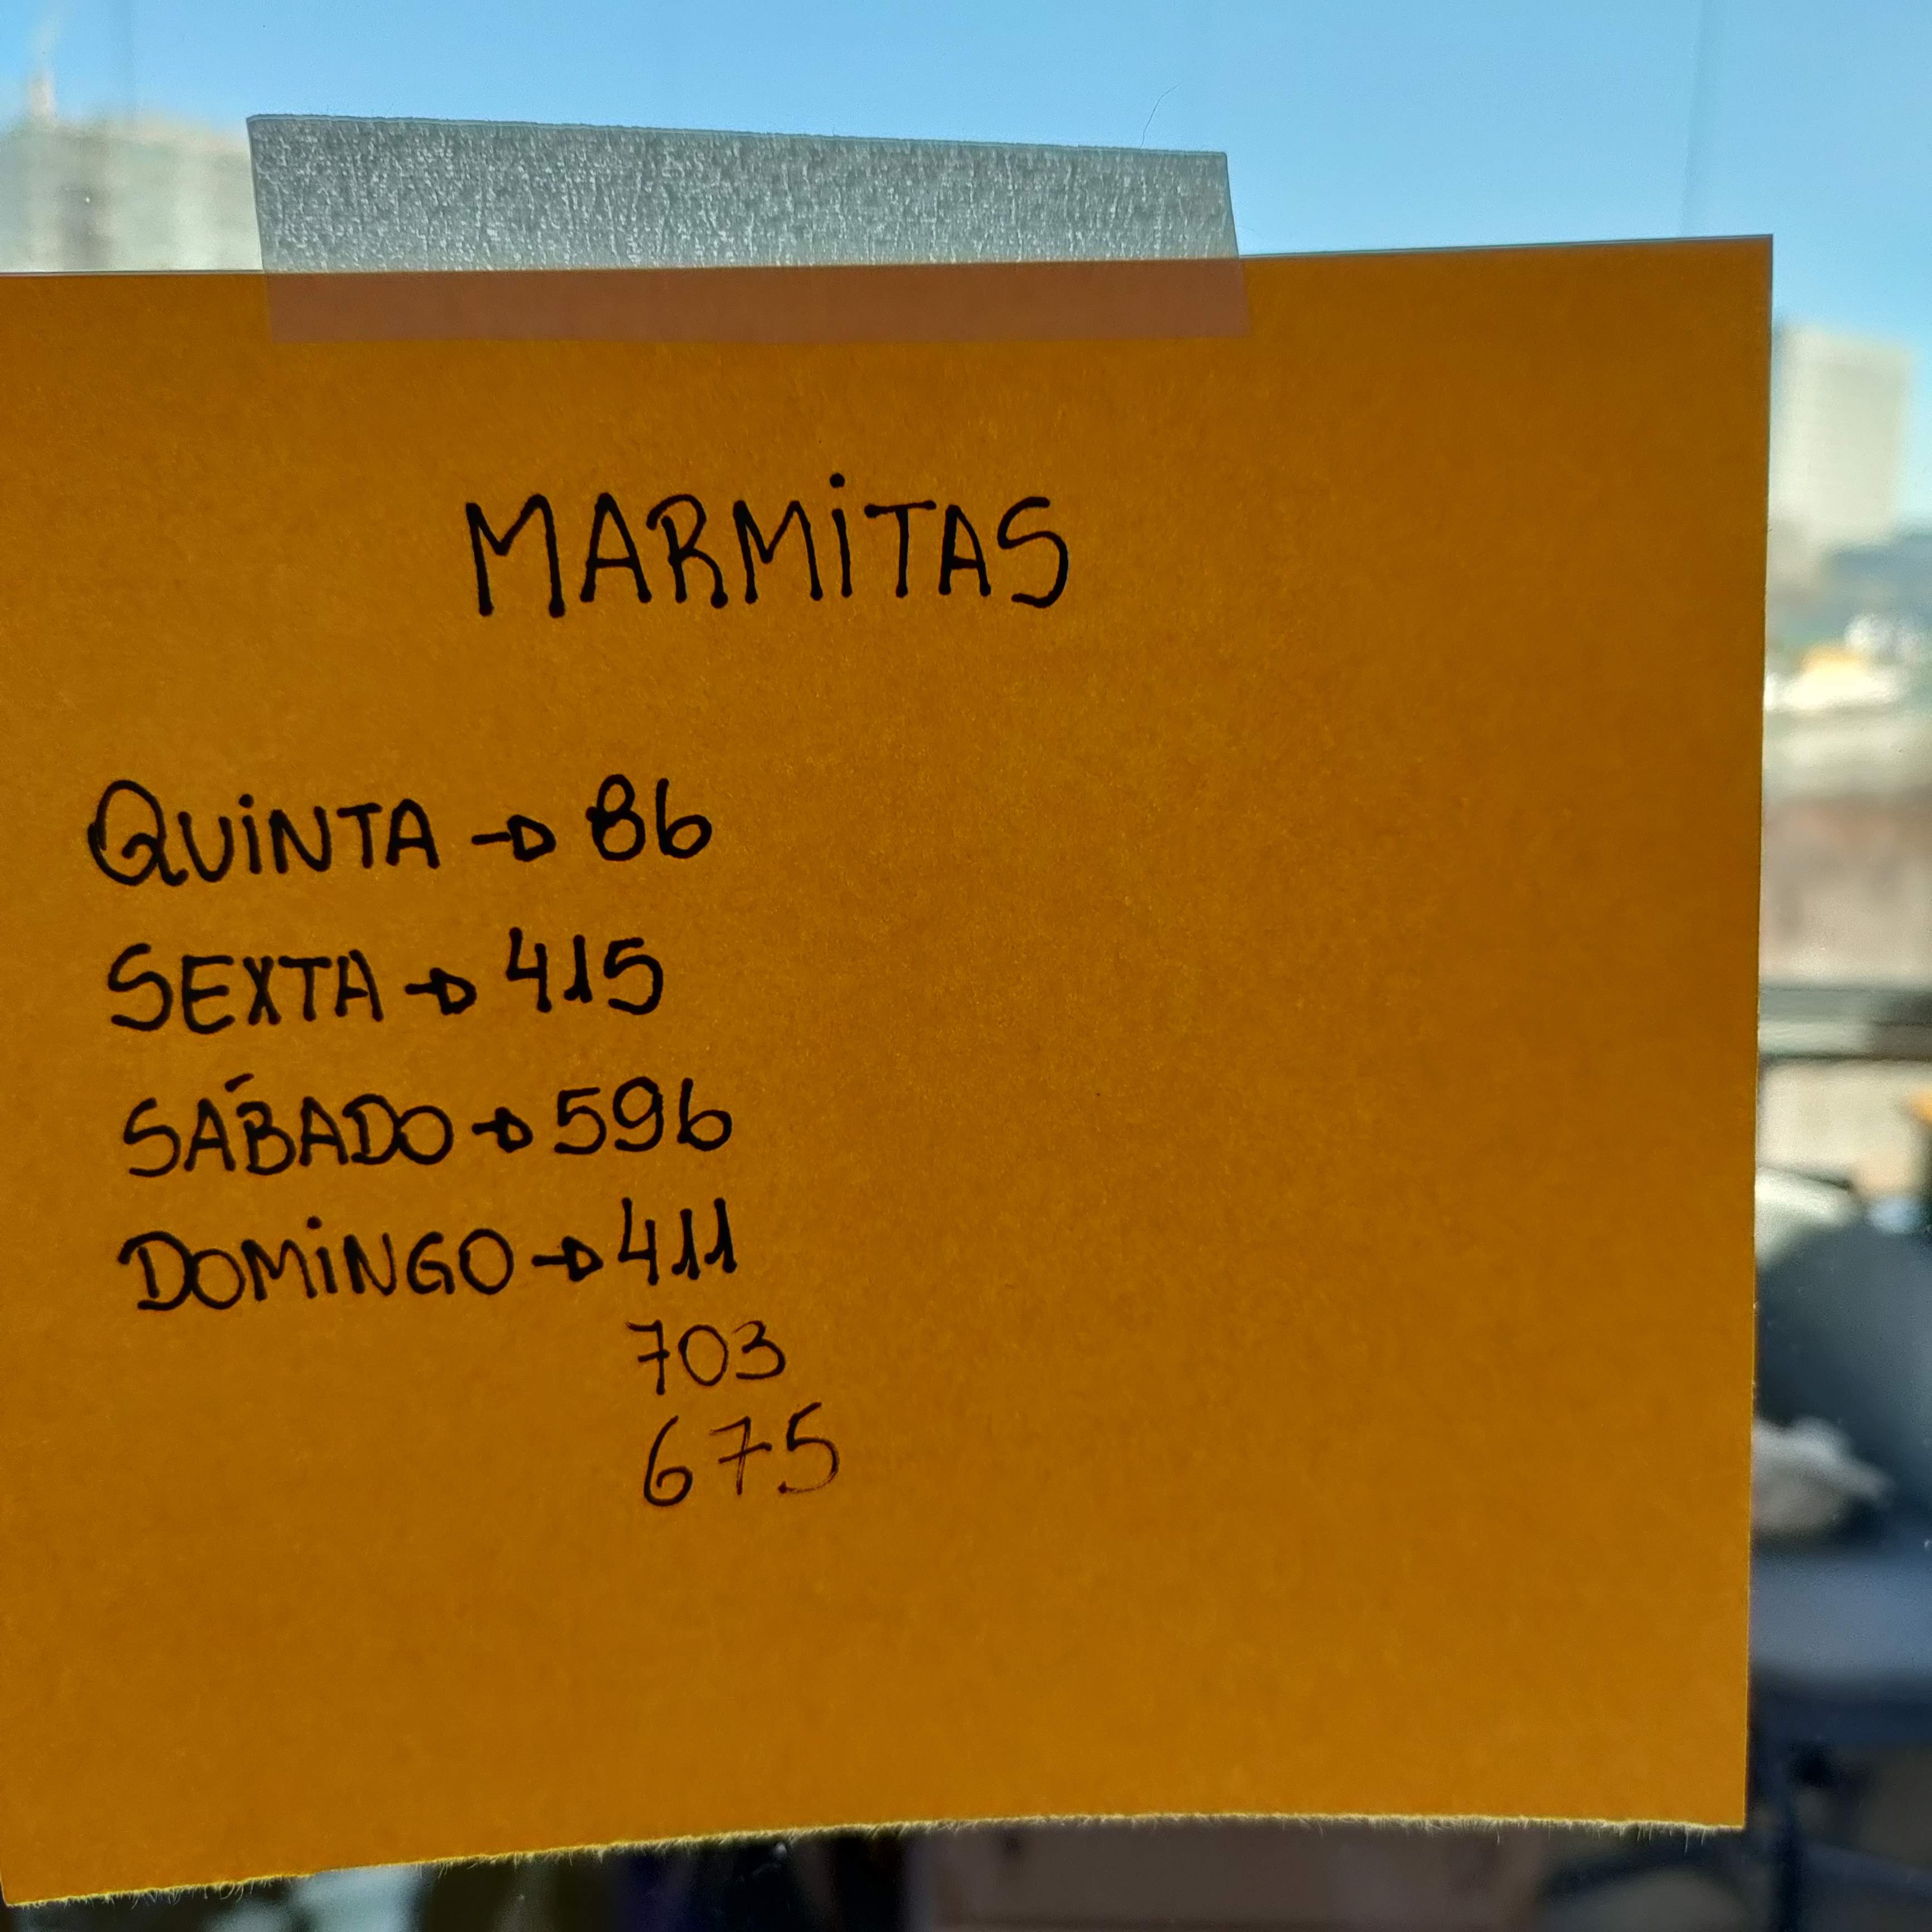 MARMiTAS
QUiNTA → 86
SEXTA → 415
SÁBADO → 596
DOMiNGO → 411
703
675